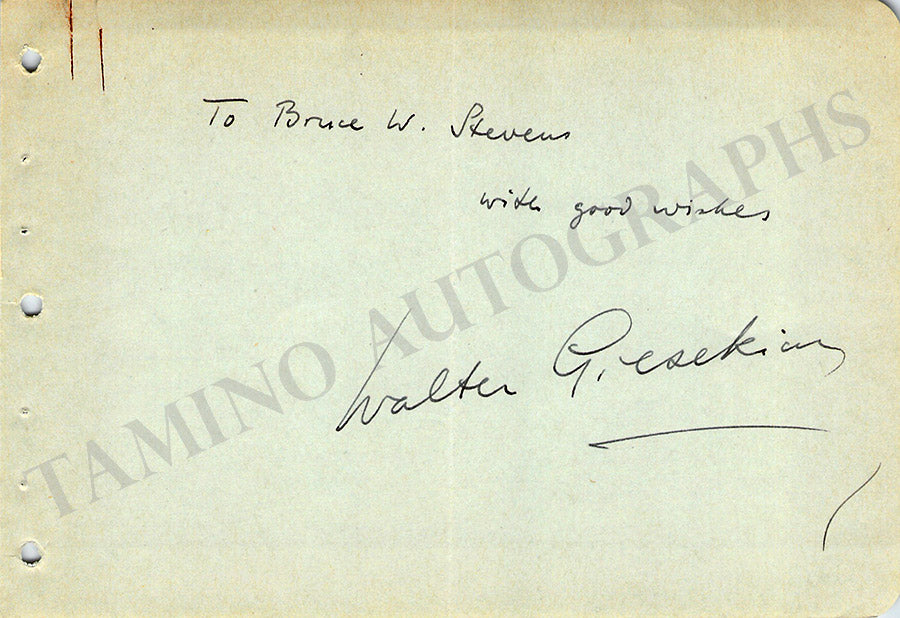 To Bruce W. Stevens
with good wishes
Walter Gieseking
TAMINO AUTOGRAPHS